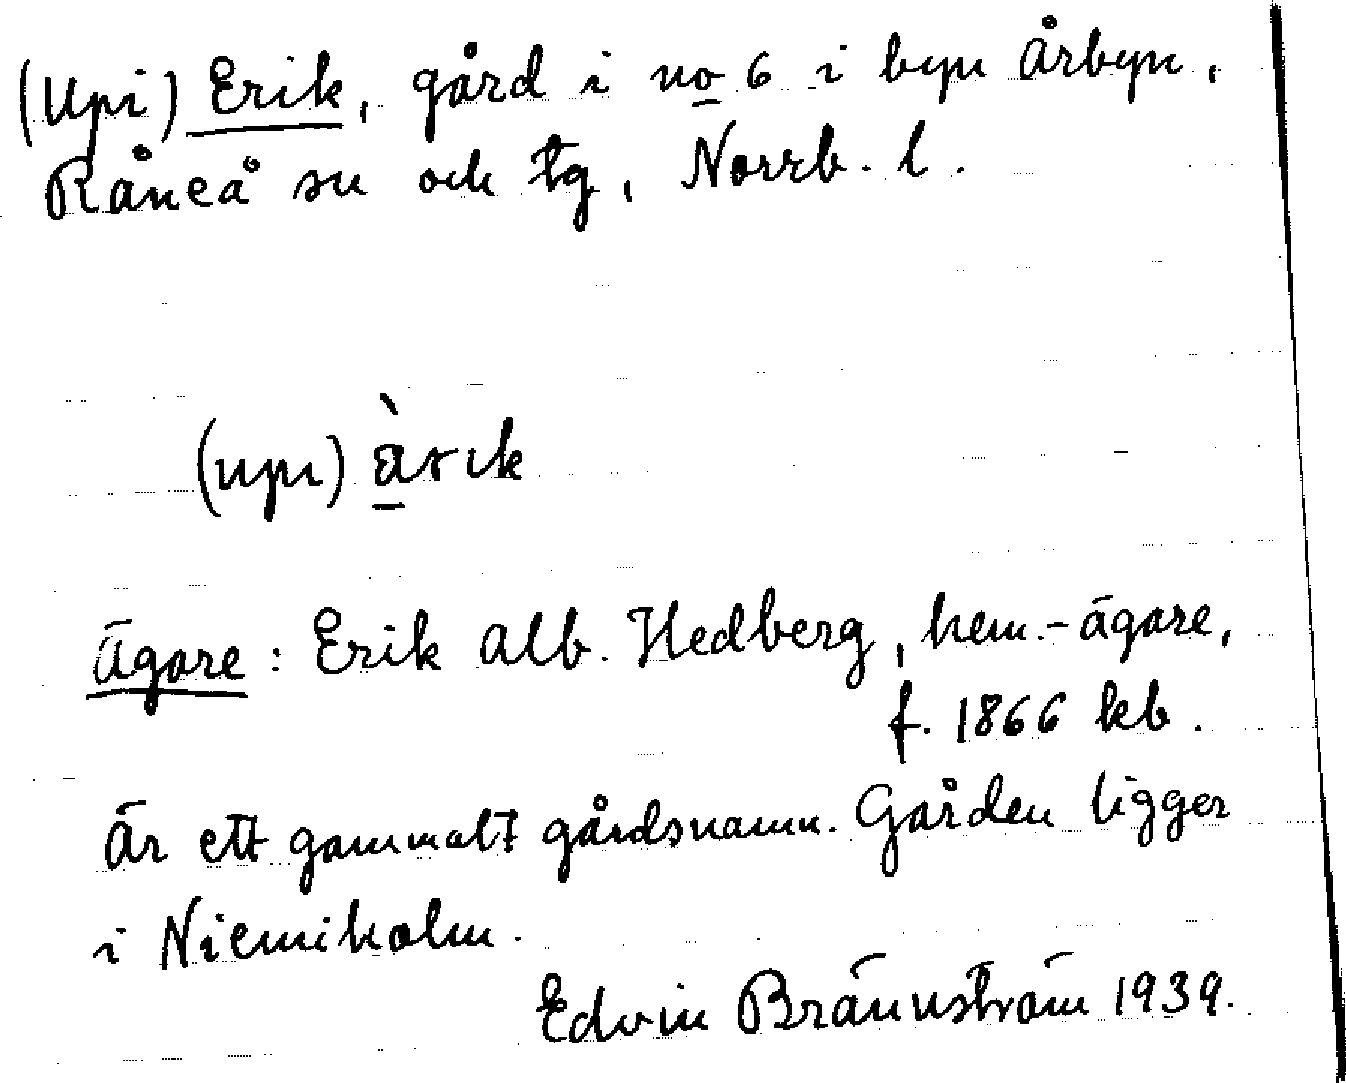 (Upi) Erik, gård i no 6 i byn Årbyn,
Råneå sn och tg, Norrb. l.
(upi) àrik
Ägare: Erik Alb. Hedberg, hem.-ägare,
f. 1866 kb.
Är ett gammalt gårdsnamn. Gården ligger
i Niemiholm.
Edvin Brännström 1939.